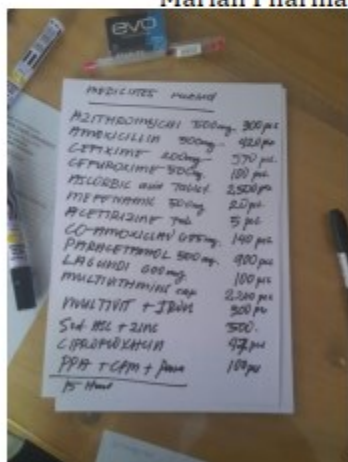 Marian Pharma
evo
MEDICINES
AZITHROMYCIN 500mg. 300 pcs
AMOXICILLIN 500mg- 920 pcs
CEFIXIME 200mg- 570 pcs
CEFUROXIME 500g. 100 pcs
ASCORBIC acid Tablet 2500 pcs
MEFENAMIC 500mg 20 pcs
5 pcs
CO-AMOXICLAV 625mg. 140 pcs
PARACETAMOL 500mg. 900 pcs
LAGUNDI 600mg 100 pcs
MULTIVITAMINS cap 2200 pcs
MULTIVIT + IRON 300 pcs
+ ZINC 500.
CIPROFLOXACIN pcs
PPA + CPM + Para 100 pcs
15